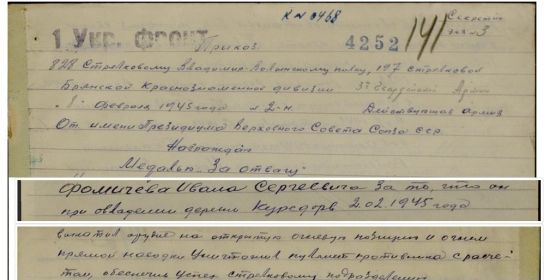 К № 0468
Секретно
экз № 3
1 Укр. фронт 4252 141
Приказ
828 Стрелковому Владимир-Волынскому полку, 197 стрелковой
Брянской Краснознаменной дивизии 3й Гвардейской Армии
"8" февраля 1945 года № 2-н. Действующая армия
От имени Президиума Верховного Совета Союза ССР
Награждаю
Медалью За отвагу
Фомичева Ивана Сергеевича За то, что он
при овладении деревни Курсдорв 2.02.1945 года
выкатив орудие на открытую огневую позицию и огнем
прямой наводки уничтожил пулемет противника с расче-
том, обеспечив успех стрелковому подразделению